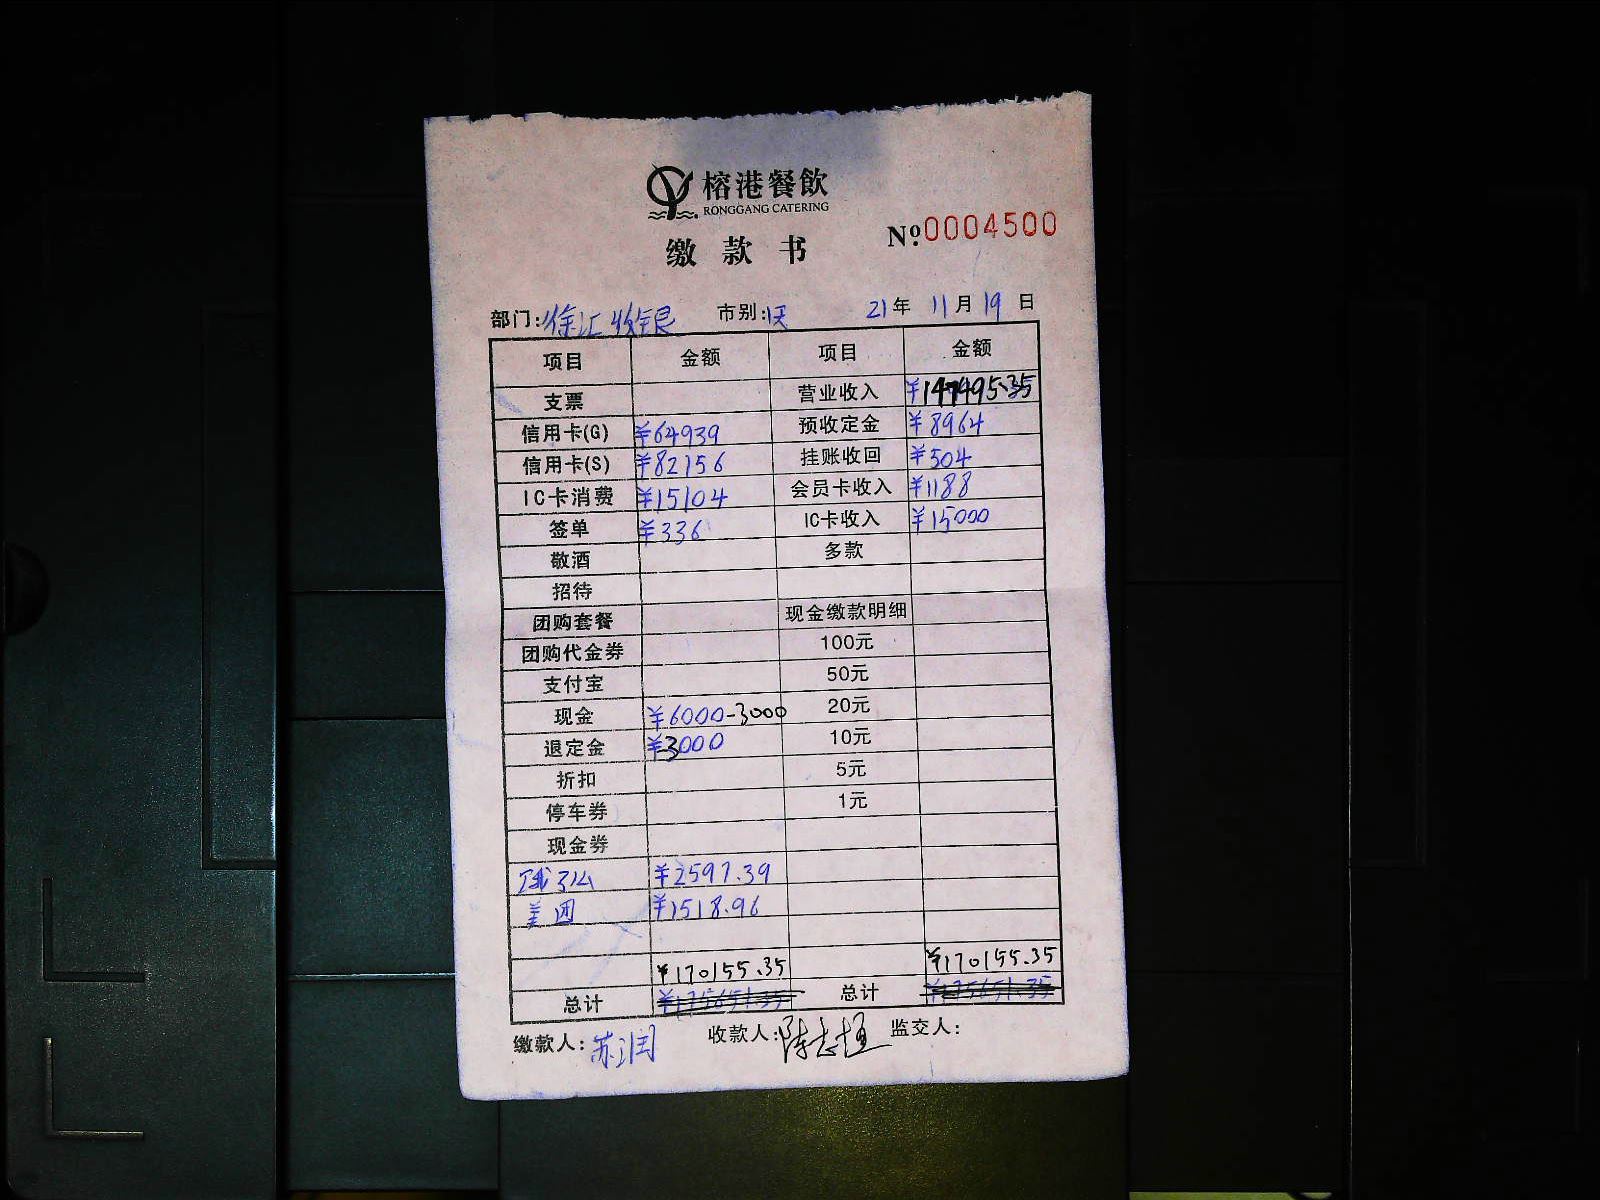 榕港餐飲
RONGGANG CATERING
缴款书
№0004500
部门:徐汇收银 市别: 21年 11月 19日
项目 金额 项目 金额
支票 营业收入
信用卡(G) ¥64939 预收定金 ¥8964
信用卡(S) ¥82156 挂账收回 ¥504
IC卡消费 ¥15104 会员卡收入 ¥1188
签单 ¥336 IC卡收入 ¥15000
敬酒 多款
招待
团购套餐 现金缴款明细
团购代金券 100元
支付宝 50元
现金 ¥6000-3000 20元
退定金 ¥3000 10元
折扣 5元
停车券 1元
现金券
饿了么 ¥2597.39
美团 ¥1518.96
¥170155.35 ¥170155.35
总计 ¥175651.35 总计 ¥175651.35
缴款人:苏润 收款人:陈志恒 监交人: